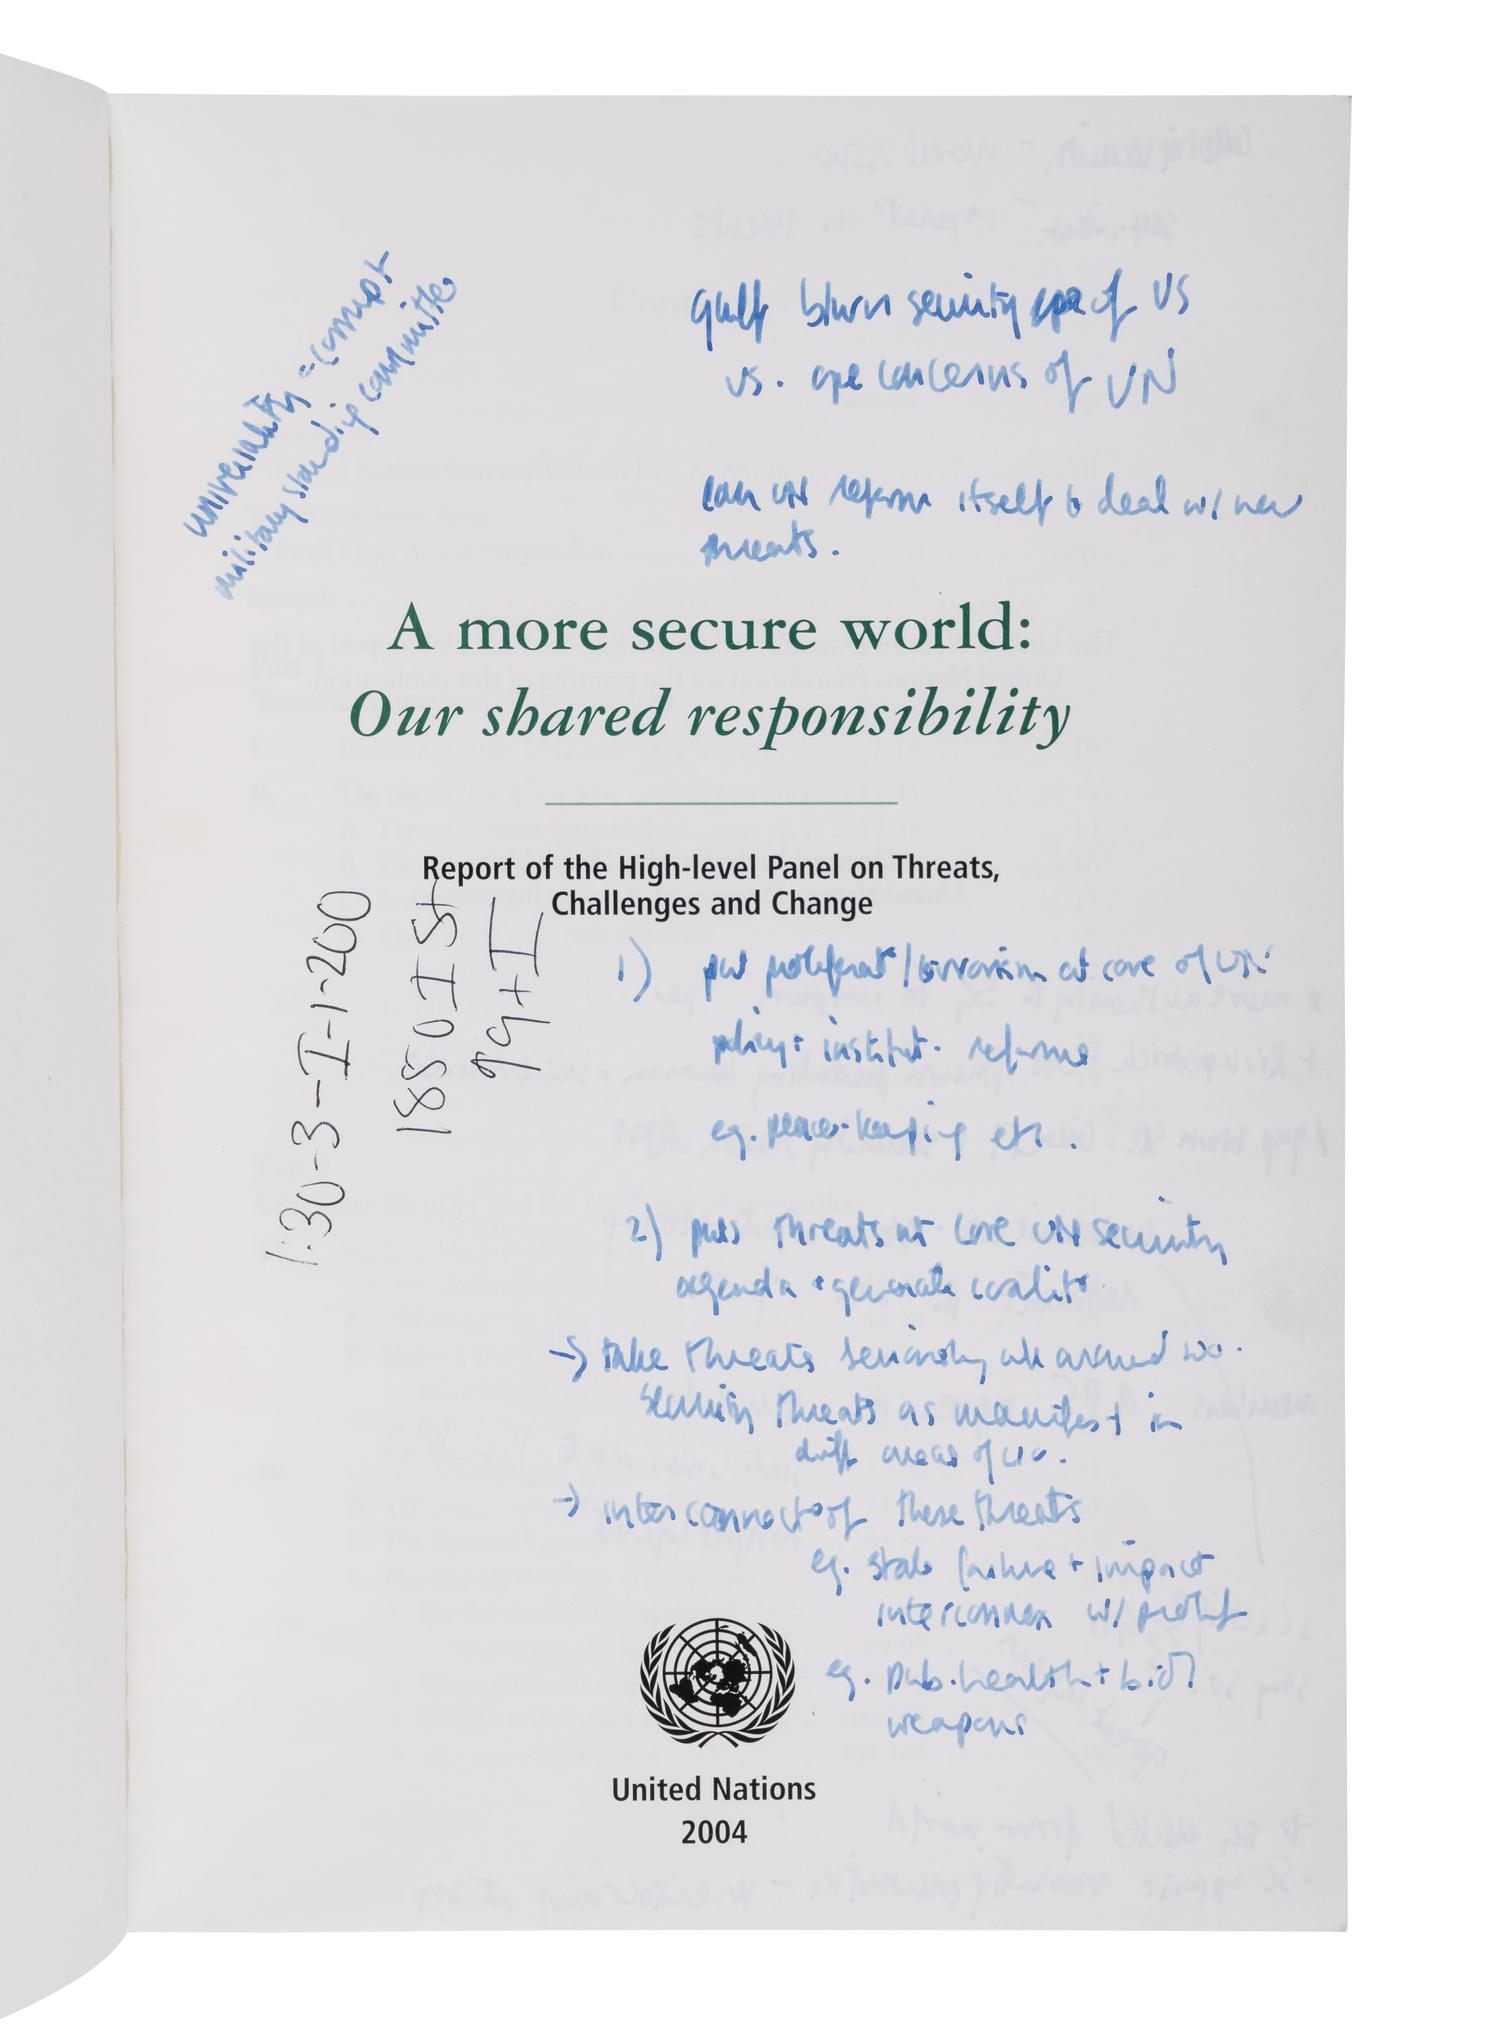 universality = corrupt
military standing committee
gulf btwn security of US
vs. concerns of UN
can UN reform itself to deal w/ new
threats.
A more secure world:
Our shared responsibility
Report of the High-level Panel on Threats,
Challenges and Change
1:30-3-I-1-200
1880 I St
19+I
1) put proliferat/terrorism at core of UN
policy + institut. reforms
eg. peace-keeping etc.
2) puts threats at core UN security
agenda + generate
→ take threats seriously all around wo.
security threats as manifest in
diff areas of wo.
→ interconnect of these threats
eg. state failure + impact
interconnex w/ prolif
eg. pub. health + biol
weapons
United Nations
2004